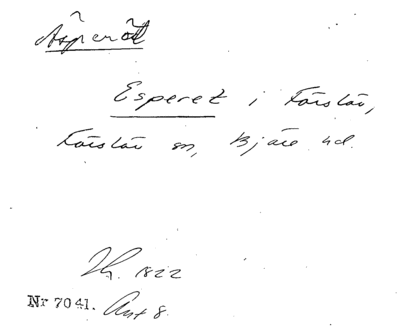 Asperöd
Esperet i Förslöv,
Förslöv sn, Bjäre hd.
1822
Nr 7041. Ant 8.